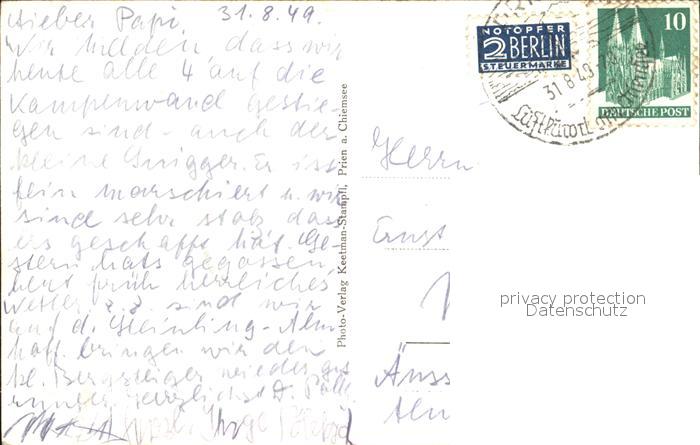 Lieber Papi, 31.8.49.
Wir melden dass wir
heute alle 4 auf die
Kampenwand gestie-
gen sind - auch der
kleine Er ist
fein marschiert u. wir
sind sehr stolz dass
ers geschafft hat. Ge-
stern hats gegossen,
heut früh herrliches
Wetter. z.Z. sind wir
auf d. Steinling-Alm
hoff. bringen wir den
kl. Bergsteiger wieder gut
runter. Herzlichst D.
Inge
Photo-Verlag Keetman-Stampfl, Prien a. Chiemsee
NOTOPFER
2 BERLIN
STEUERMARKE
10
DEUTSCHE POST
31.8.49
Luftkurort
Herrn
Ernst
privacy protection
Datenschutz